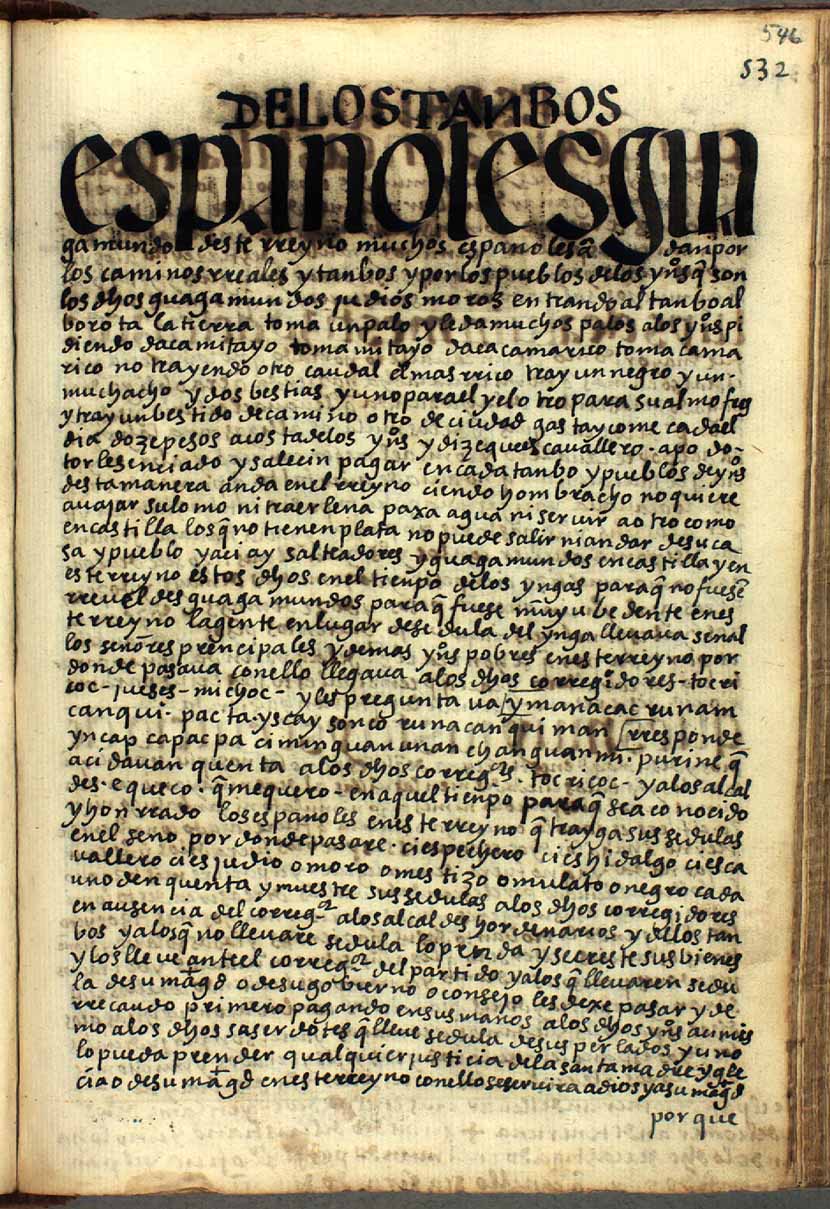 546
532
DELOSTANBOS
españolesgua
gamundo desterreyno muchos españoles q̃ andan por
los caminos rreales y tanbos y por los pueblos delos yn͂s q̃ son
los dhos guagamundos judios moros entrando al tanbo al
borota latierra toma un palo y le da muchos palos alos yn͂s pi
diendo daca mitayo toma mitayo daca camarico toma cama
rico no trayendo otro caudal el mas rrico tray un negro y un
muchacho y dos bestias y uno para el y el otro para su almofres
y tray un bestido de camino otro de ciudad gasta y come cada el
dia doze pesos a costa delos yn͂s y dize que es cavallero apo do
tor lesenciado y sale cin pagar en cada tanbo y pueblos de yn͂s
desta manera anda en el rreyno ciendo hombracho no quiere
auajar su lomo ni traer lena paxa agua ni servir a otro como
en castilla los q̃ no tienen plata no puede salir ni andar de su ca
sa y pueblo y aci ay salteadores y guagamundos en castilla y en
este rreyno estos dhos en el tienpo delos yngas para q̃ no fuesen
rreueldes guagamundos para q̃ fuese muy ubedente en es
te rreyno la gente en lugar de sedula del ynga llevava señal
los señores prencipales y demas yn͂s pobres en este rreyno por
donde pasava con ello llegava a los dhos corregidores tocri
coc jueses michoc y les preguntava ymanacac runam
canqui pacta yscay sonco runa canqui man rresponde
yncap capacpa ciminquan unanchanguanmi purine q̃
aci davan quenta alos dhos corregors tocricoc y alos alcal
des equeco q̃ mequero en aquel tienpo para q̃ sea conocido
y honrrado los españoles en este rreyno q̃ trayga sus sedulas
en el seno por donde pasare ci es pechero ci es hidalgo ci es ca
vallero ci es judio o moro o mestizo o mulato o negro cada
uno den quenta y muestre sus sedulas alos dhos corregidores
en ausencia del corregor alos alcaldes hordenarios y delos tan
bos y alos q̃ no llevare sedula lo prenda y secreste sus bienes
y los lleve ante el corregor del partido y alos q̃ llevaren sedu
la de su magd o de su gobierno o consejo les dexe pasar y de
rrecaudo primero pagando en sus manos alos dhos yn͂s acimis
mo alos dhos saserdotes q̃ lleve sedula de sus perlados y uno
lo pueda prender qualquier justicia dela santa madre ygle
cia o de su magd en este rreyno con ello se servira a dios y a su magd
porque